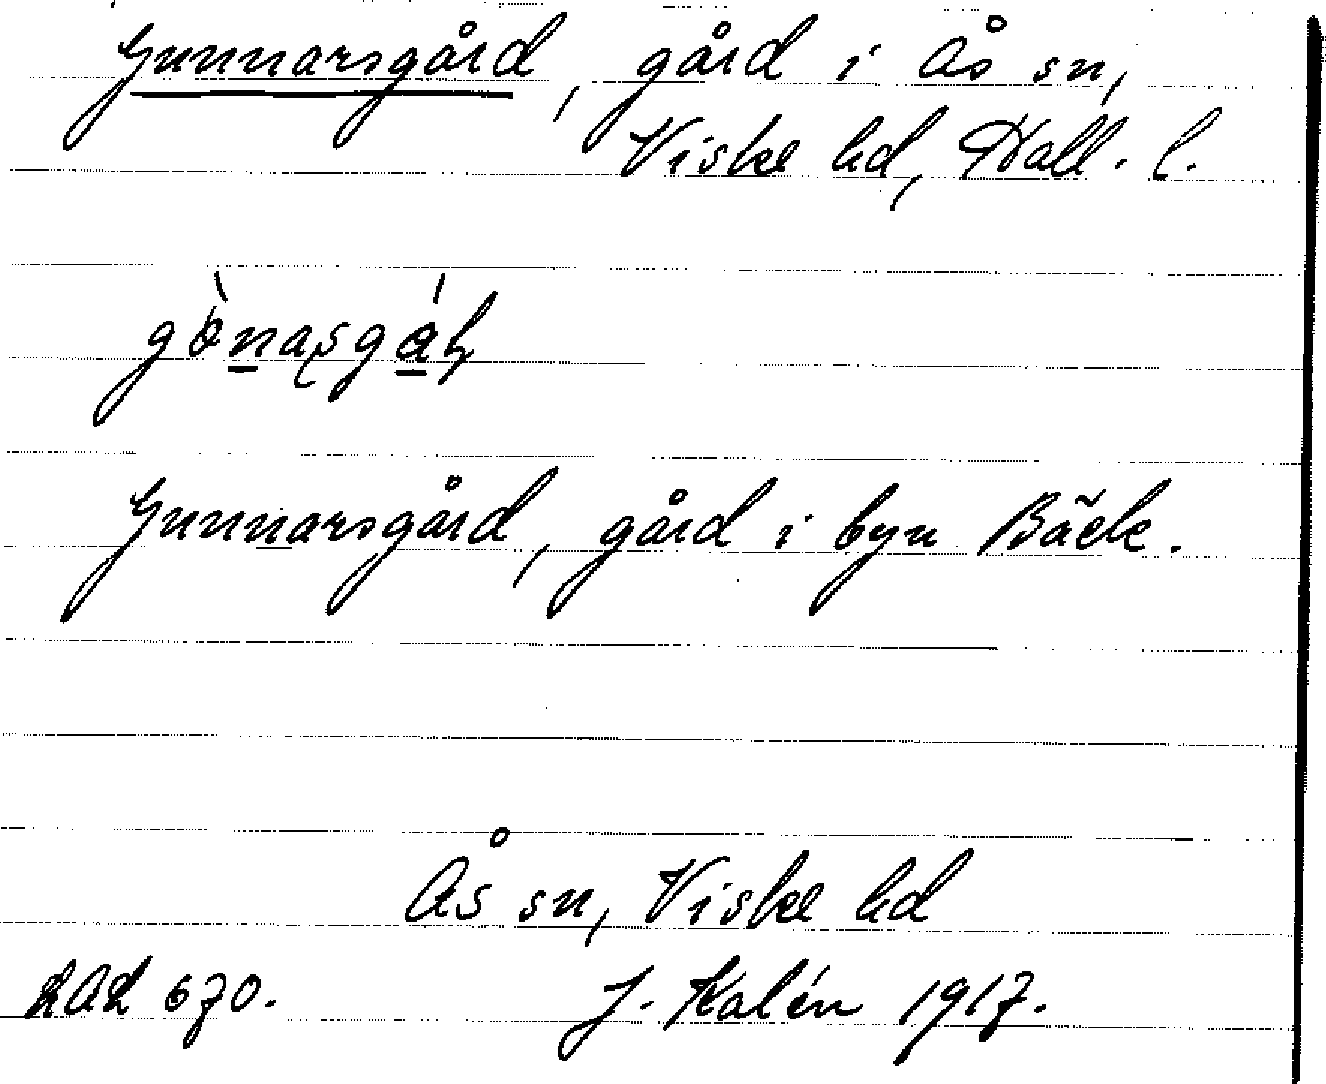 Gunnarsgård, gård i Ås sn,
Viske hd, Hall. l.
Gunnarsgård, gård i byn Bäck.
Ås sn, Viske hd
LAL 670. J. Kalén 1917.